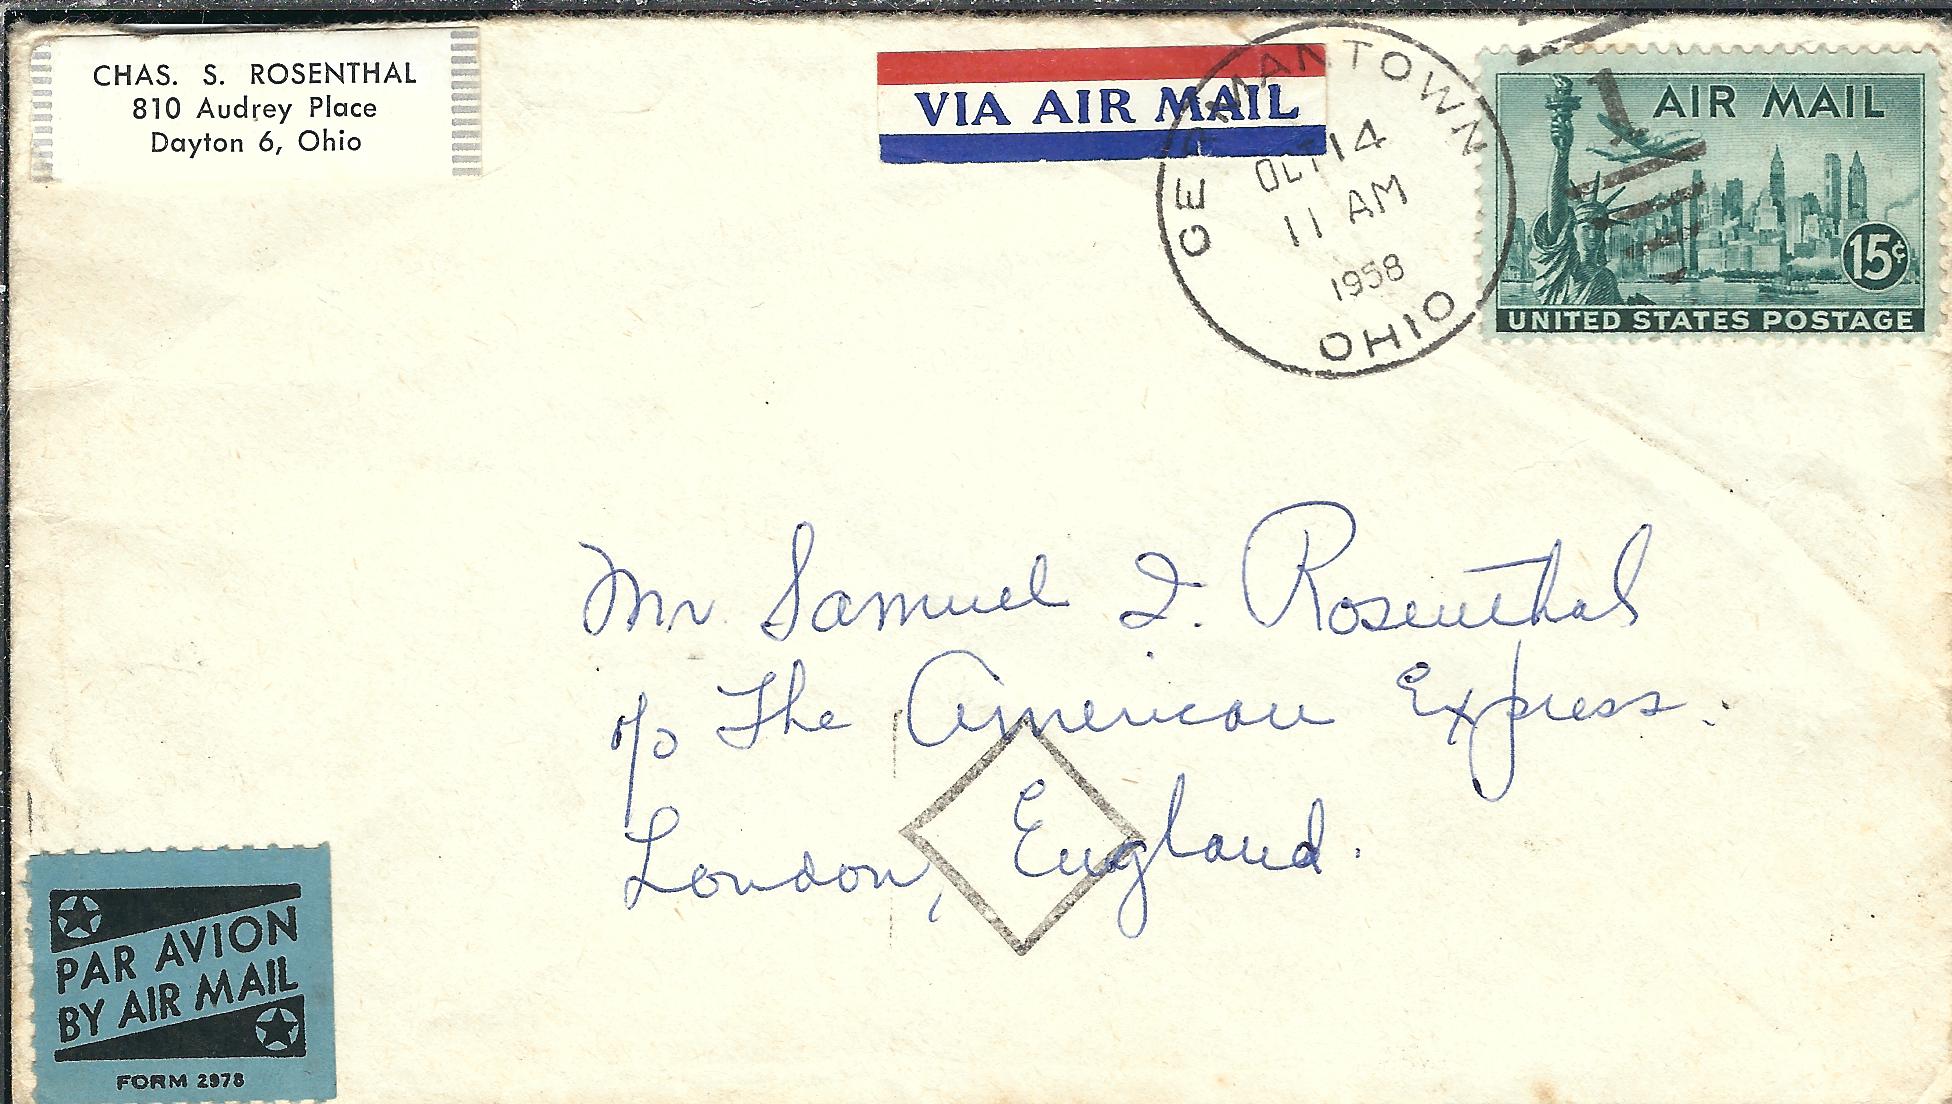 CHAS. S. ROSENTHAL
810 Audrey Place
Dayton 6, Ohio
VIA AIR MAIL
GERMANTOWN
OCT 14
11 AM
1958
OHIO
1
AIR MAIL
15¢
UNITED STATES POSTAGE
Mr. Samuel I. Rosenthal
c/o The American Express.
London, England.
PAR AVION
BY AIR MAIL
FORM 2978